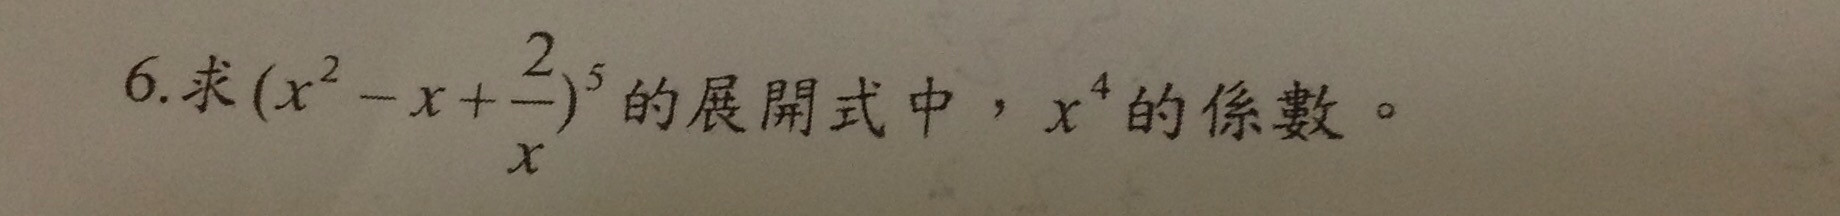 6.求(x² − x + 2/x)⁵的展開式中，x⁴的係數。